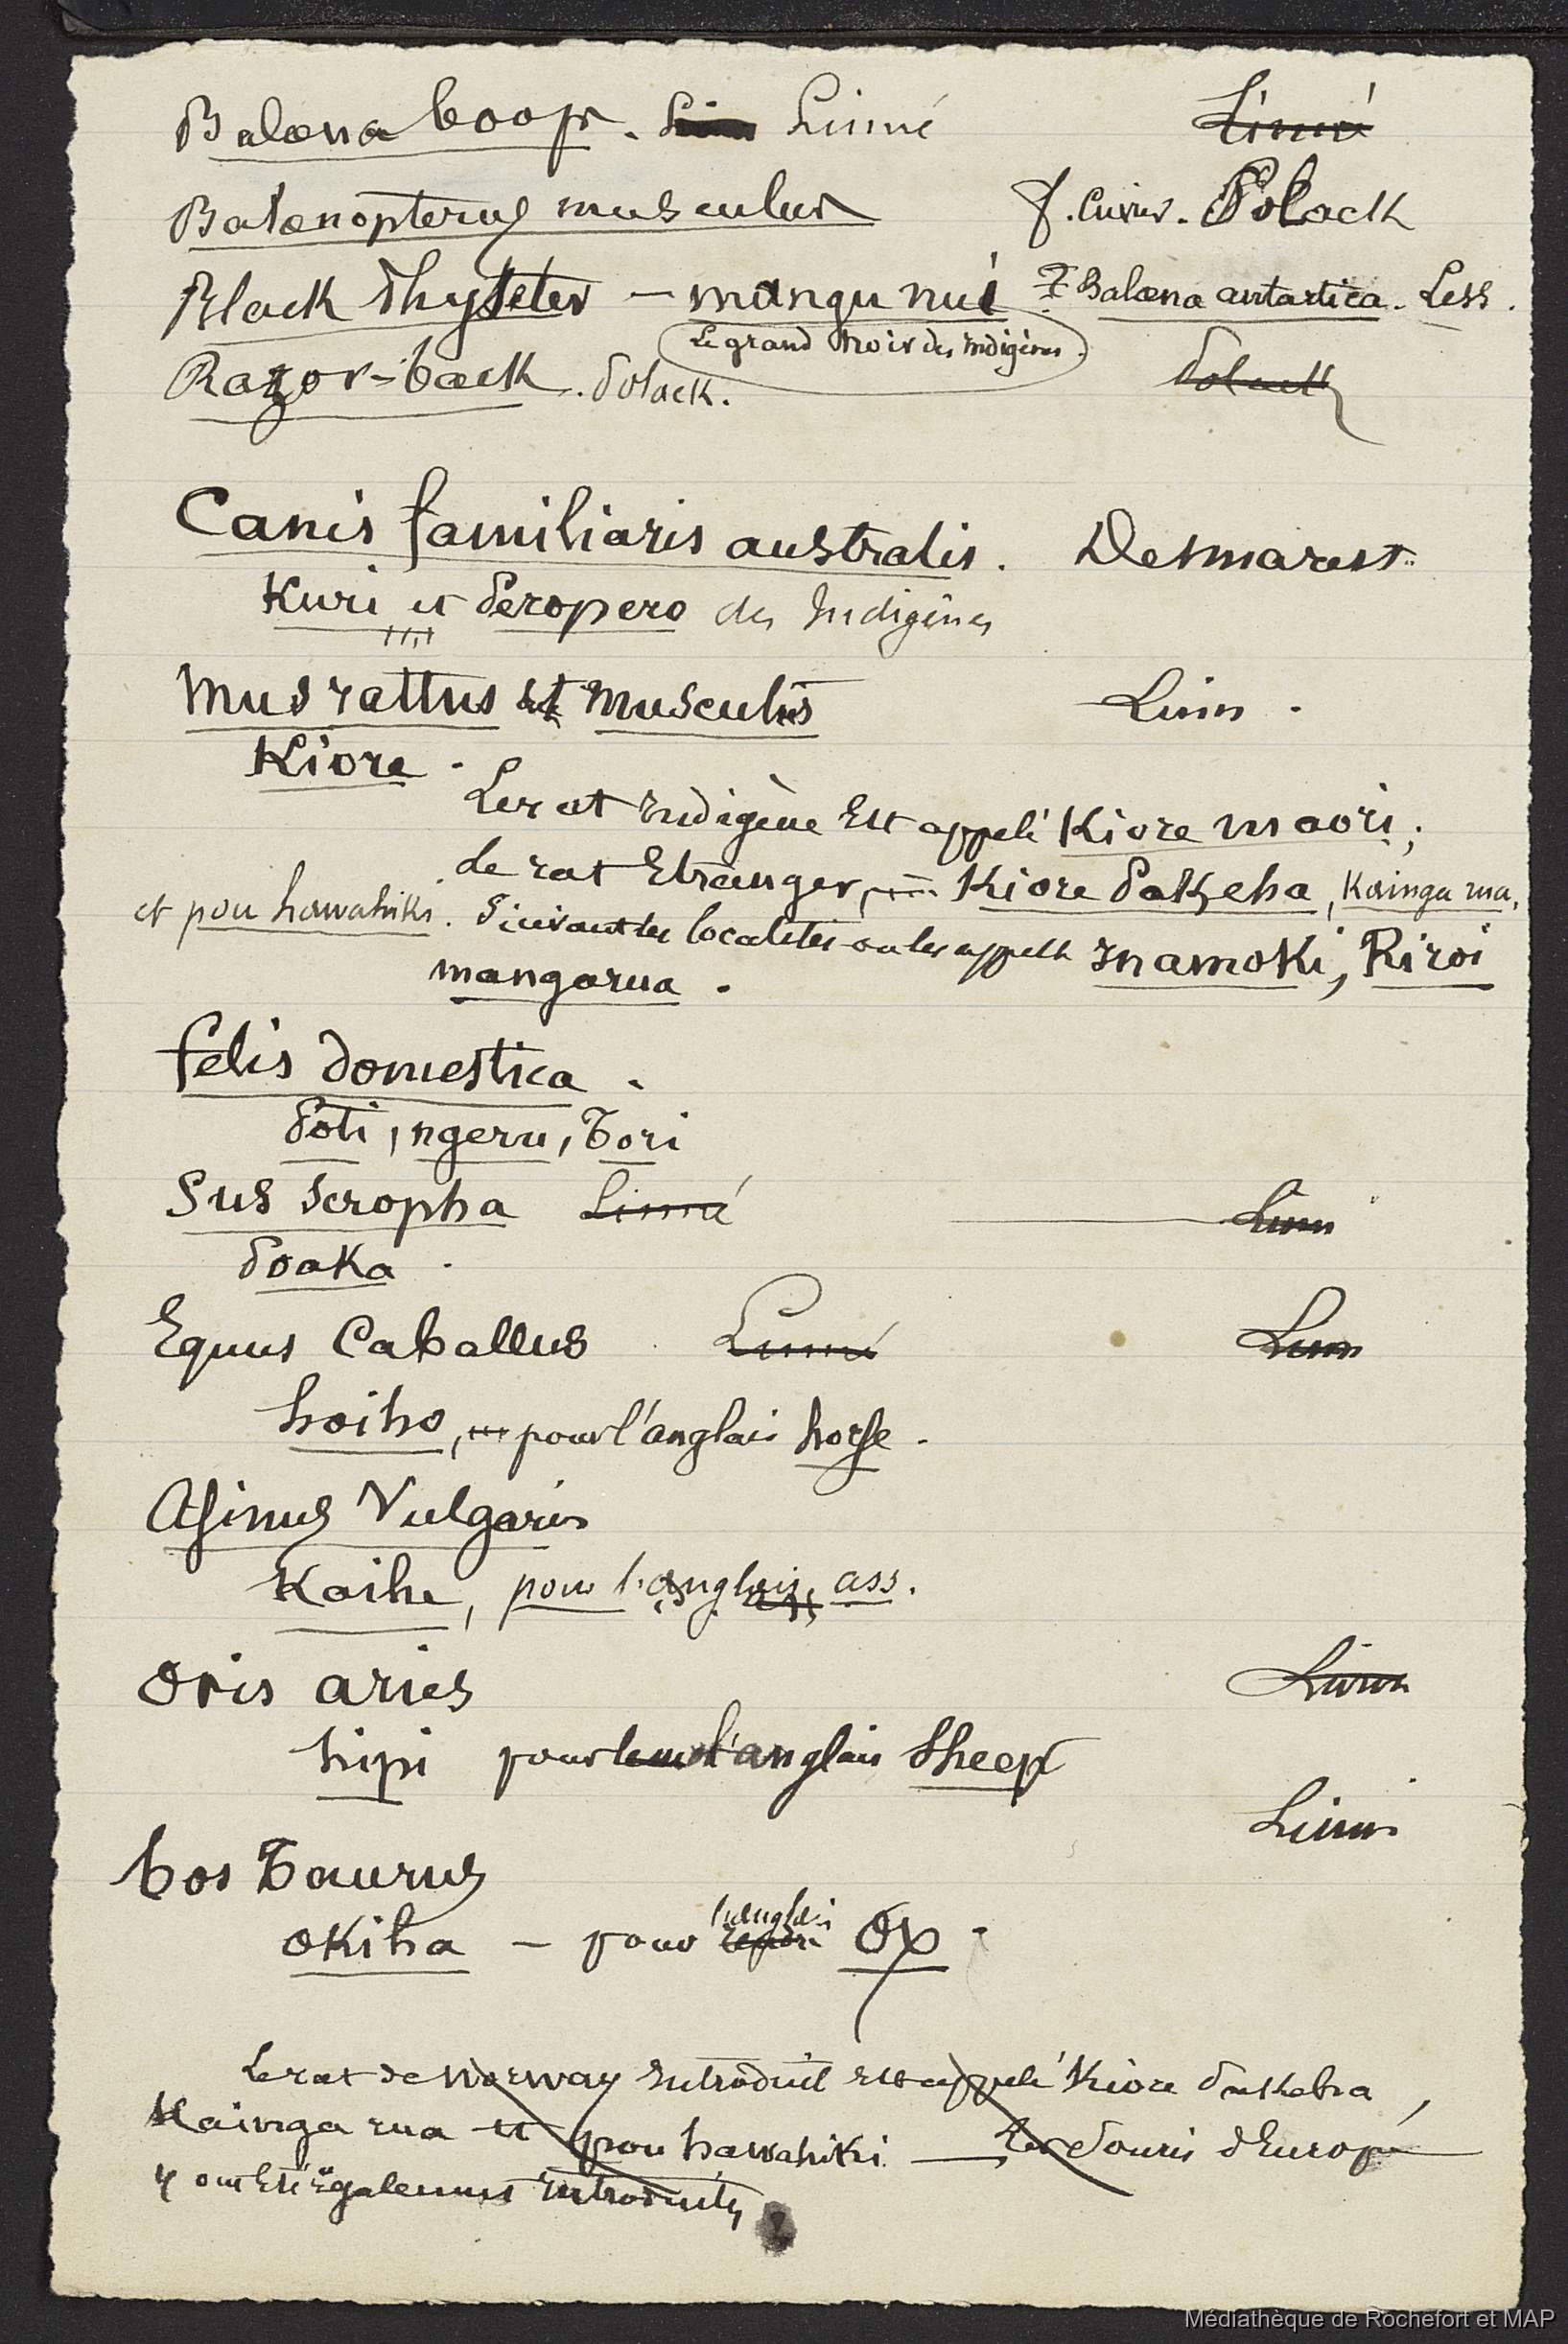 Balæna boops. Linné Linné
Balænopterus musculus F. Cuvier. Polack
Black Physeter — mangu nui ? Balæna antartica. Less.
Le grand noir des indigènes.
Razor-back. Polack. Polack
Canis familiaris australis. Desmarest.
Kuri et Peropero des Indigènes
Mus rattus et musculus Linn.
Kiore.
Le rat Indigène Est appelé Kiore maori;
le rat Etranger, Kiore Pakeha, Kainga rua,
et pou hawahiki. Suivant les localités on les appelle Inamoki, Riroi
mangarua.
felis domestica.
Poti, ngeru, Tori
Sus scropha Linné Linn
Poaka.
Equus Caballus Linné Linn
hoiho, pour l'anglais horse.
Asinus Vulgaris
Kaihe, pour l'anglais ass.
Ovis aries Linn
hipi pour l'anglais Sheep
Linn
bos Taurus
okiha — pour l'anglais Ox.
Le rat de Norway Introduit Est appelé Kiore Pakeha,
Kainga rua et pou hawahiki — Les Souris d'Europe
y ont Eté Egalement Introduites
Médiathèque de Rochefort et MAP